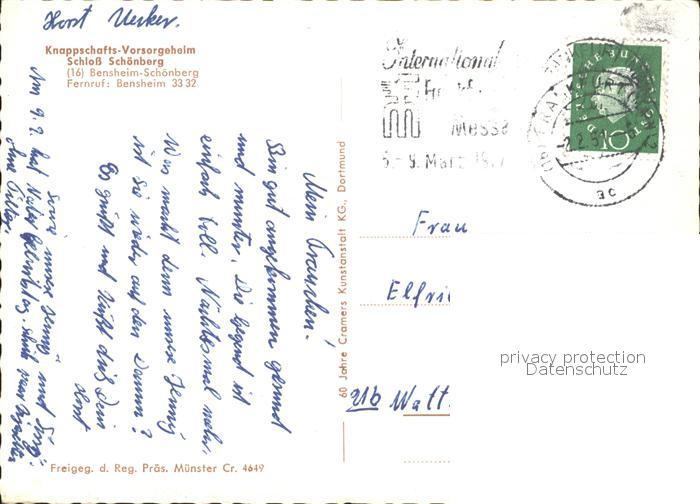 Horst Uerker.
Knappschafts-Vorsorgeheim
Schloß Schönberg
(16) Bensheim-Schönberg
Fernruf: Bensheim 33 32
Mein Frauchen!
Bin gut angekommen gesund
und munter. Die Gegend ist
einfach toll. Nächstes mal mehr.
Was macht denn unsere Jenny
ist sie wieder auf den Damm?
Es grüßt und küßt dich Dein
Horst
sowie unsere Jenny und
Am 9.2 hat Vater Geburtstag.
60 Jahre Cramers Kunstanstalt KG., Dortmund
Freigeg. d. Reg. Präs. Münster Cr. 4649
Internationale
Messe
5.-9. März
DEUTSCHE BUNDESPOST
10
FRANKFURT
ac
Frau
Elfri
21b Watt
privacy protection
Datenschutz